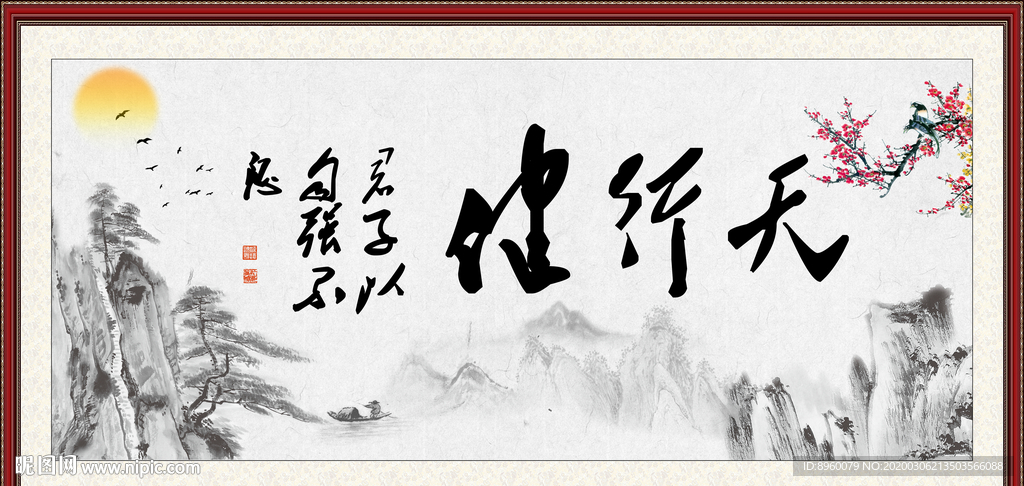 天行健
君子以
自强不
息
昵图网 www.nipic.com
ID:8960079 NO:20200306213503566088